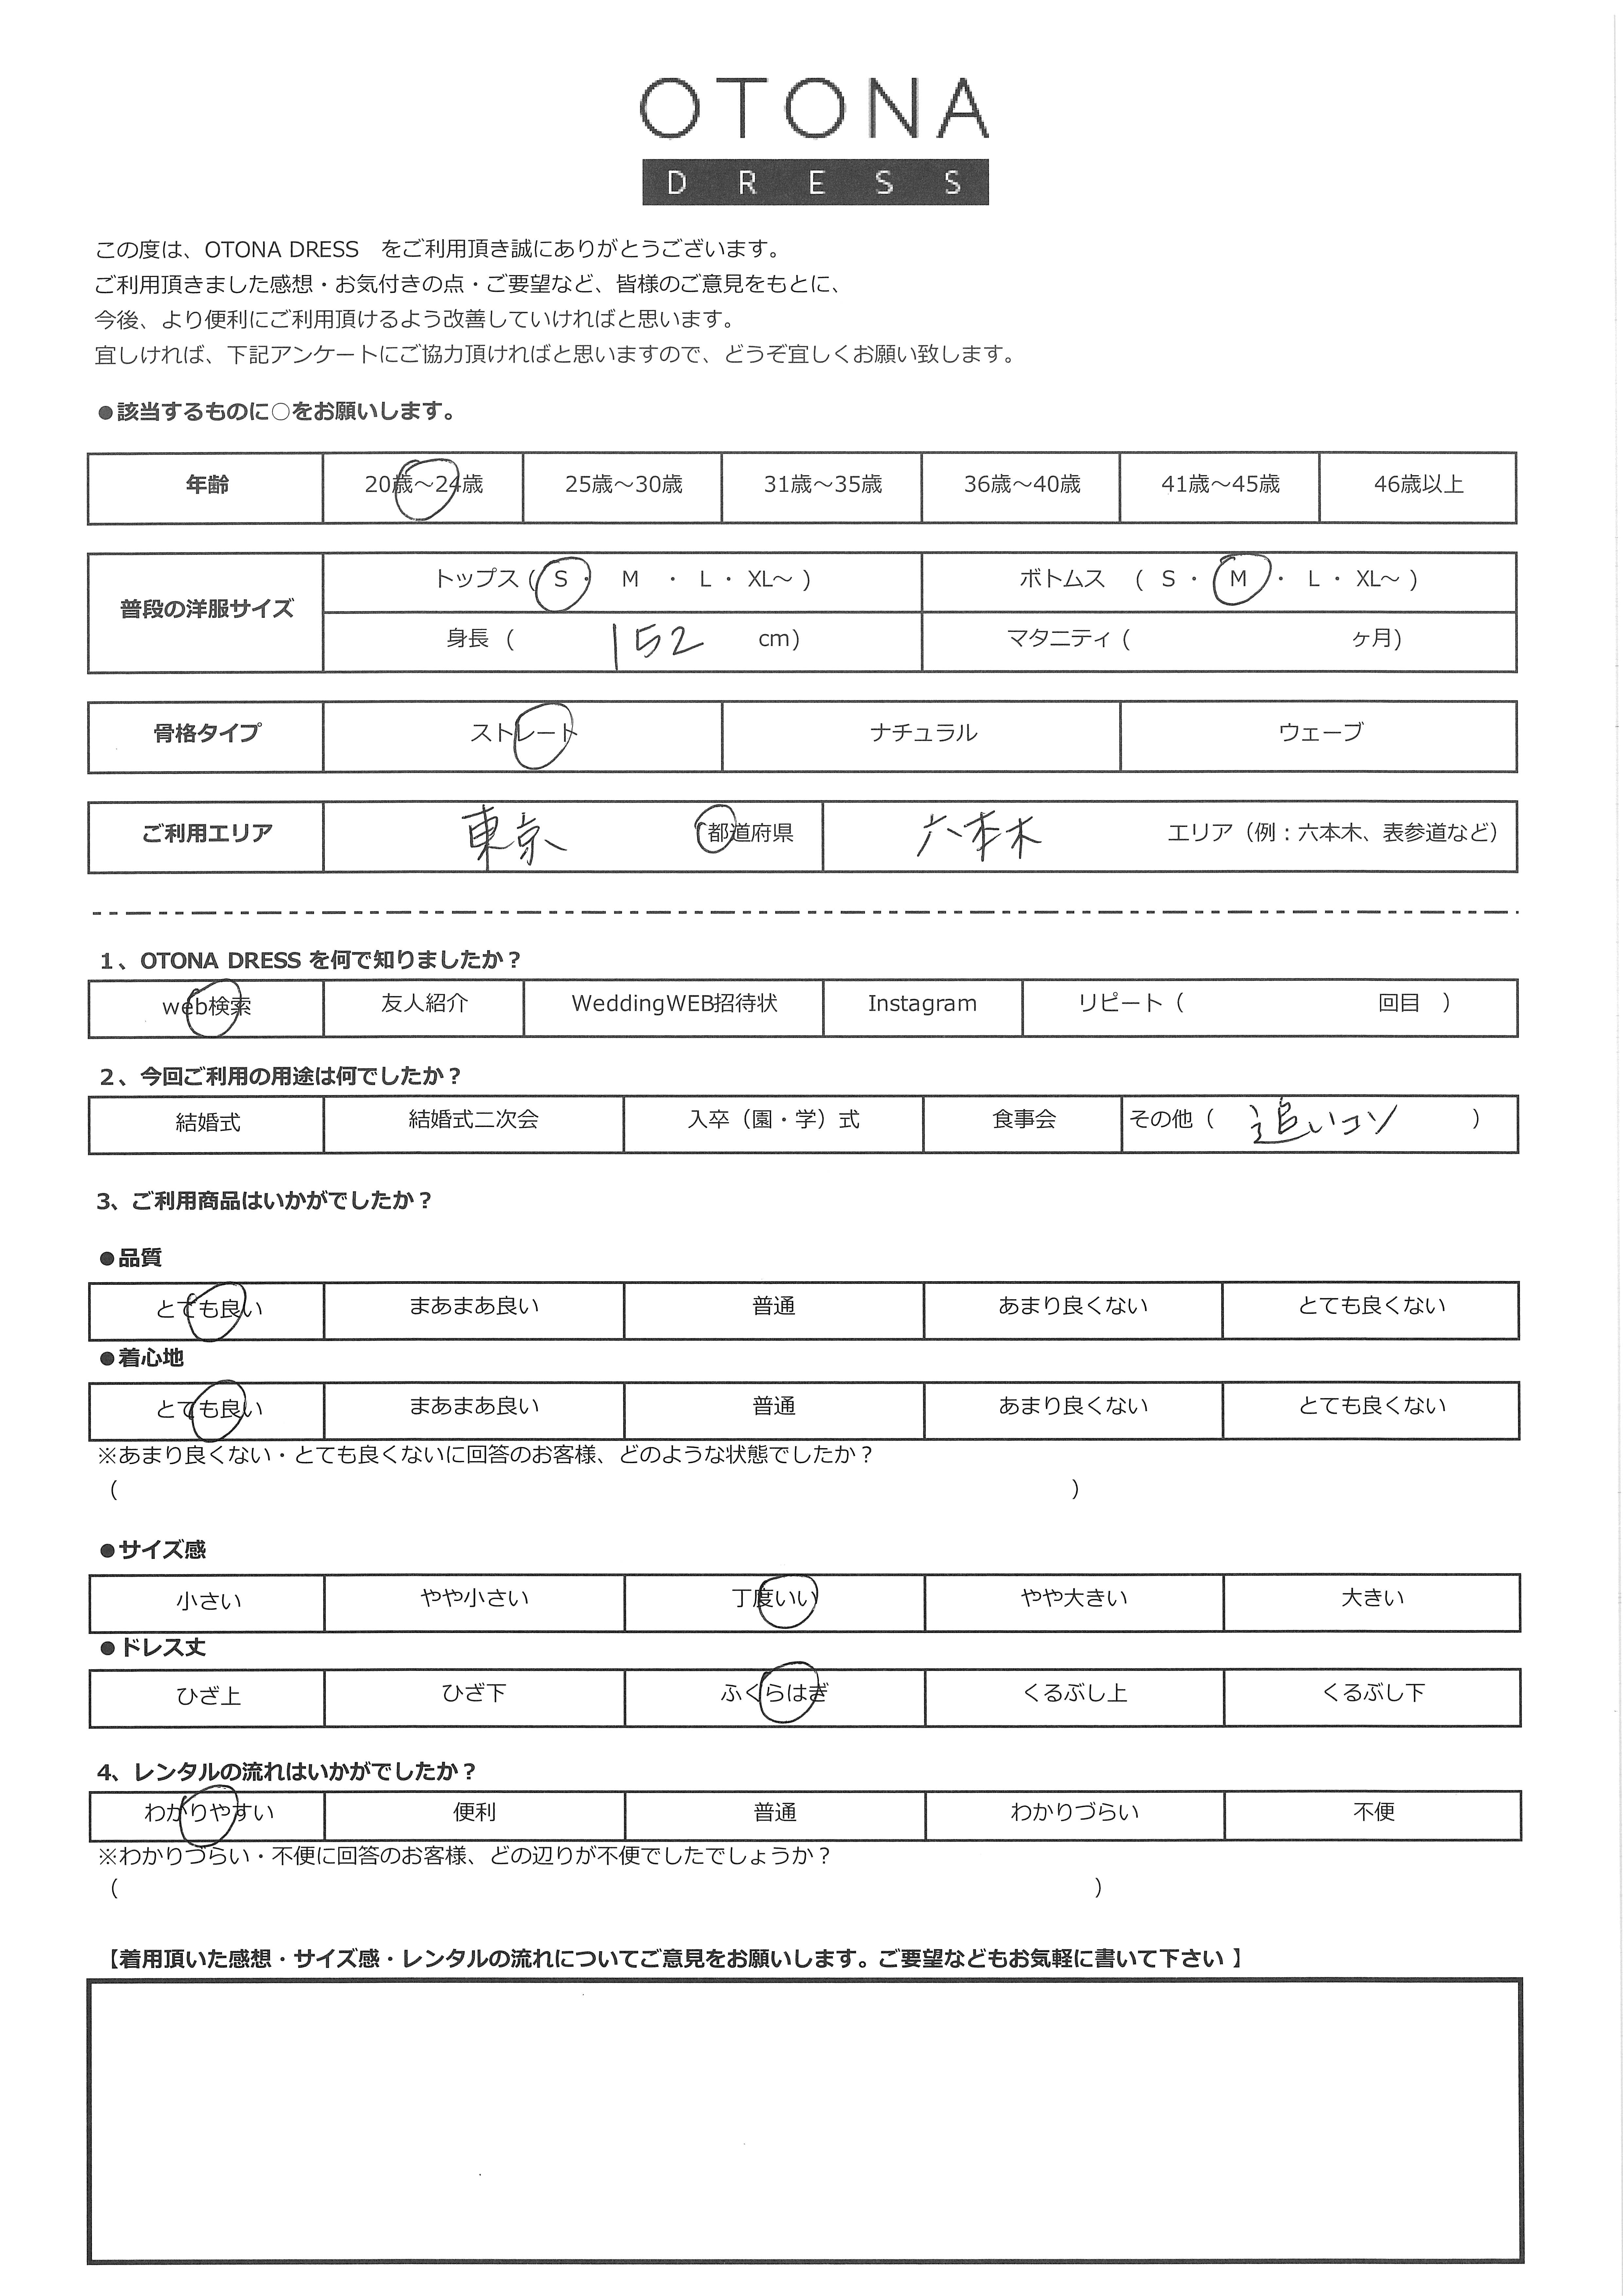 OTONA
DRESS
この度は、OTONA DRESS　をご利用頂き誠にありがとうございます。
ご利用頂きました感想・お気付きの点・ご要望など、皆様のご意見をもとに、
今後、より便利にご利用頂けるよう改善していければと思います。
宜しければ、下記アンケートにご協力頂ければと思いますので、どうぞ宜しくお願い致します。
●該当するものに○をお願いします。
年齢 20歳～24歳 25歳～30歳 31歳～35歳 36歳～40歳 41歳～45歳 46歳以上
普段の洋服サイズ トップス ( S ・ M ・ L ・ XL～ ) ボトムス ( S ・ M ・ L ・ XL～ )
身長 ( 152 cm) マタニティ ( ヶ月)
骨格タイプ ストレート ナチュラル ウェーブ
ご利用エリア 東京 都道府県 六本木 エリア（例：六本木、表参道など）
1、OTONA DRESS を何で知りましたか？
web検索 友人紹介 WeddingWEB招待状 Instagram リピート（ 回目 ）
2、今回ご利用の用途は何でしたか？
結婚式 結婚式二次会 入卒（園・学）式 食事会 その他（ 追いコン ）
3、ご利用商品はいかがでしたか？
●品質
とても良い まあまあ良い 普通 あまり良くない とても良くない
●着心地
とても良い まあまあ良い 普通 あまり良くない とても良くない
※あまり良くない・とても良くないに回答のお客様、どのような状態でしたか？
（ ）
●サイズ感
小さい やや小さい 丁度いい やや大きい 大きい
●ドレス丈
ひざ上 ひざ下 ふくらはぎ くるぶし上 くるぶし下
4、レンタルの流れはいかがでしたか？
わかりやすい 便利 普通 わかりづらい 不便
※わかりづらい・不便に回答のお客様、どの辺りが不便でしたでしょうか？
（ ）
【着用頂いた感想・サイズ感・レンタルの流れについてご意見をお願いします。ご要望などもお気軽に書いて下さい 】